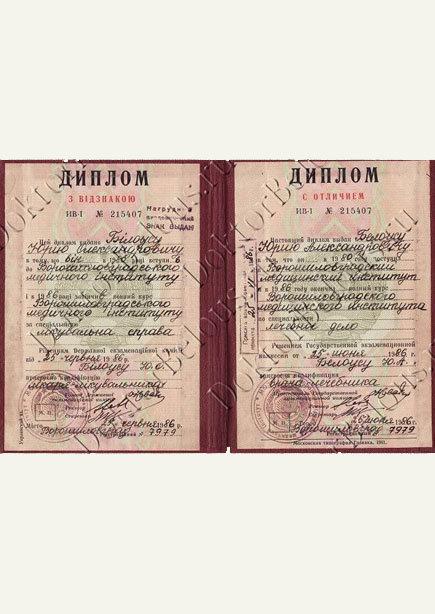 ДИПЛОМ
З ВІДЗНАКОЮ
ИВ-І № 215407
Нагрудний
ЗНАК ВЫДАН
Цей диплом видано Білоусу
Юрию Олександровичу
в тому, що він в 1980 році вступив
до Ворошиловградського
медичного інституту
і в 1986 році закінчив повний курс
Ворошиловградського
медичного інституту
за спеціальністю
лікувальна справа
Рішенням Державної екзаменаційної комісії
від 25 червня 1986 р.
Білоусу Ю.О.
присвоєно кваліфікацію
лікаря-лікувальника
Голова Державної
екзаменаційної комісії
Ректор
Секретар
М. П.
Місто
червня 1986 р.
7979
ДИПЛОМ
С ОТЛИЧИЕМ
ИВ-І № 215407
Настоящий диплом выдан Белоусу
Юрию Александровичу
в том, что он в 1980 году поступил
в Ворошиловградский
медицинский институт
и в 1986 году окончил полный курс
Ворошиловградского
медицинского института
по специальности
лечебное дело
Решением Государственной экзаменационной
комиссии от 25 июня 1986 г.
Белоусу Ю.А.
присвоена квалификация
врача-лечебника
Председатель Государственной
экзаменационной комиссии
Ректор
Секретарь
М. П.
26 июня 1986 г.
7979
Московская типография Гознака, 1981.
DoktorBelous.ru